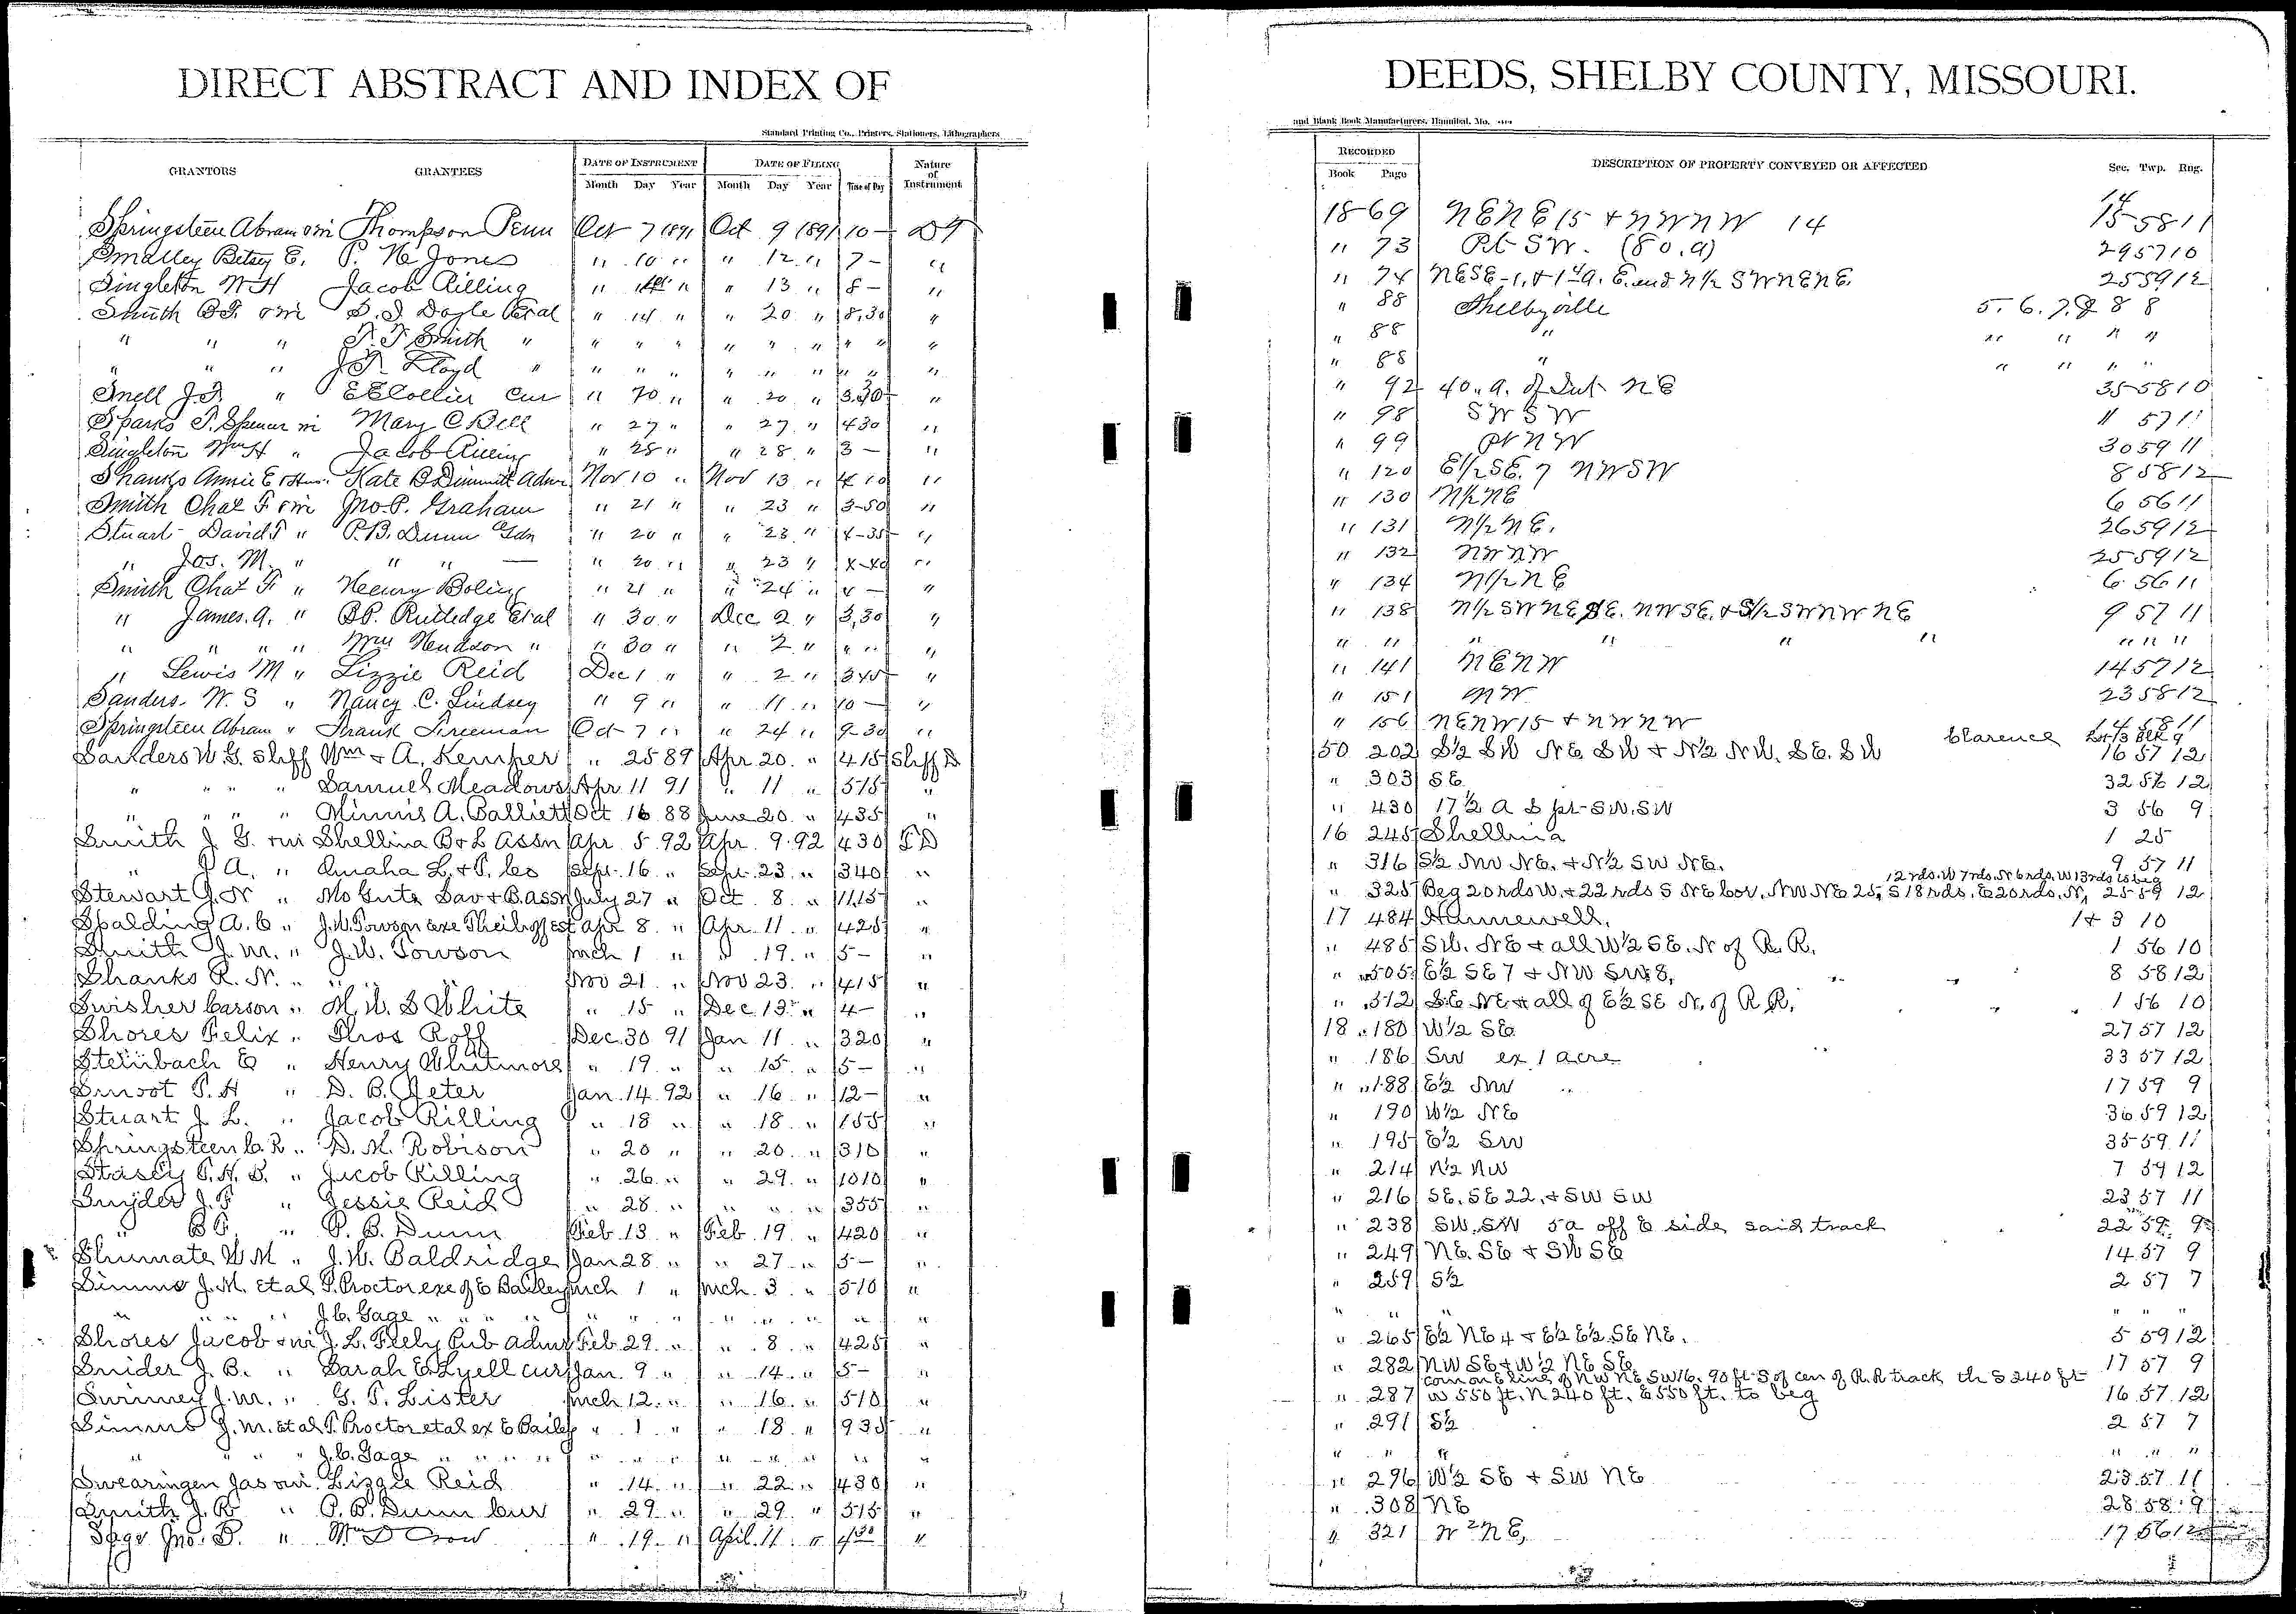 DIRECT ABSTRACT AND INDEX OF
Standard Printing Co., Printers, Stationers, Lithographers
GRANTORS GRANTEES DATE OF INSTRUMENT DATE OF FILING Nature of Instrument
Month Day Year Month Day Year Time of Day
Springsteen Abram & wi Thompson Penn Oct 7 1891 Oct 9 1891 10 —
Smalley Betsy E. P. H. Jones " 10 " " 12 " 7 — "
Singleton W H Jacob Rilling " " " 13 " 8 — "
Smith & wi Doyle Etal " 14 " " 20 " 8,30 "
" " " Smith " " " " " " " " " "
" " " Lloyd " " " " " " " " " "
Snell J. F. " E E Collier Cur " 20 " " 20 " "
Sparks T. Spencer wi Mary C Bell " 27 " " 27 " 430 "
Singleton Wm H " Jacob Rilling " 28 " " 28 " 3 — "
Shanks Annie E & Hus. Kate B Dimmitt Adm Nov 10 " Nov 13 " 4 10 "
Smith Chat F & wi Jno. P. Graham " 21 " " 23 " 3-50 "
Stuart David T " P. B. Dunn Gdn " 20 " " 23 " 4-35 "
" Jos. M. " " " — " 20 " " 23 " 4-40 "
Smith Chat F " Henry Boling " 21 " " 24 " 4 — "
" James. A. " Rutledge Etal " 30 " Dec 2 " 3,30 "
" " " " Wm Hendson " " 30 " " 2 " " " "
" Lewis M " Lizzie Reid Dec 1 " " 2 " 345 "
Sanders. W. S " Nancy C. Lindsey " 9 " " 11 " 10 — "
Springsteen Abram " Frank Freeman Oct 7 " " 24 " 9-30 "
Sanders W. G. Shff Wm & A. Kemper " 25 89 Apr 20 " 415 Shff D
" " " " Samuel Meadows Apr 11 91 " 11 " 515 "
" " " " Minnis A. Balliett Oct 16 88 June 20 " 435 "
Smith J. G. & wi Shelbina B & L Assn Apr. 5 92 Apr. 9 92 430 TD
" J A. " Omaha L. & T. Co Sept. 16 " Sept. 23 " 340 "
Stewart G. N " Mo Guta Sav & B. Assn July 27 " Oct. 8 " 1115 "
Spalding A. C " J. W. Towson exe Theihoff est Apr 8 " Apr. 11 " 425 "
Smith J. M. " J. W. Towson Mch 1 " " 19 " 5 — "
Shanks R. N. " " " Nov 21 " Nov 23 " 415 "
Swisher Carson " M. W. S White " 15 " Dec 13 " 4 — "
Shores Felix " Thos Roff Dec. 30 91 Jan 11 " 320 "
Steinbach E " Henry Whitmore " 19 " " 15 " 5 — "
Smoot T. H " D. C. Jeter Jan. 14 92 " 16 " 12 — "
Stuart J. L. " Jacob Rilling " 18 " " 18 " 155 "
Springsteen C. R " D. M. Robison " 20 " " 20 " 310 "
Stasey T. H. B. " Jacob Rilling " 26 " " 29 " 1010 "
Snyder J. F " Jessie Reid " 28 " " " " 355 "
" " P. B. Dunn Feb 13 " Feb 19 " 420 "
Shumate W M " J. W. Baldridge Jan 28 " " 27 " 5 — "
Simms J. M. et al T. Proctor exe of E Bailey Mch 1 " Mch. 3 " 510 "
" " " " J. C. Gage " " " " " " " " " " "
Shores Jacob & wi J. L. Feely Pub Adm Feb 29 " " 8 " 425 "
Snider J. B. " Sarah E. Lyell cur Jan. 9 " " 14 " 5 — "
Swinney J. M. " G. T. Lister Mch 12 " " 16 " 510 "
Simms J. M. et al T. Proctor et al ex E Bailey " 1 " " 18 " 935 "
" " " J. C. Gage " " " " " " " " " " "
Swearingen Jas & wi. Lizzie Reid " 14 " " 22 " 430 "
Smith J. R " P. B. Dunn Cur " 29 " " 29 " 515 "
Sage Jno. P. " Wm D Crow " 19 " April 11 " 430 "
DEEDS, SHELBY COUNTY, MISSOURI.
and Blank Book Manufacturers, Hannibal, Mo.
RECORDED DESCRIPTION OF PROPERTY CONVEYED OR AFFECTED Sec. Twp. Rng.
Book Page
18 69 NENE 15 & NWNW 14 14 15 58 11
" 73 Pt SW. (80. a) 29 57 10
" 74 NESE - 1, & 1 a. E. end N 1/2 SWNENE. 25 59 12
" 88 Shelbyville 5. 6. 7. & 8 8
" 88 " " " " "
" 88 " " " " "
" 92 40. a. of NE 35 58 10
" 98 SWSW " 57 11
" 99 Pt NW 30 59 11
" 120 E1/2SE. 7 NWSW 8 58 12
" 130 N1/2NE 6 56 11
" 131 N1/2NE. 26 59 12
" 132 NWNW 25 59 12
" 134 N1/2NE 6 56 11
" 138 N1/2 SWNE SE. NWSE. & S1/2 SWNWNE 9 57 11
" " " " " " " " "
" 141 NENW 14 57 12
" 151 NW 23 58 12
" 156 NENW 15 & NWNW 14 58 11
50 202 S½ SW NE SW & N½ NW. SE. SW Clarence Lot 13 Blk 9 16 57 12
" 303 SE 32 56 12
" 430 17½ A S pt SW. SW 3 56 9
16 245 Shelbina 1 25
" 316 S½ NW NE. & N½ SW NE. 9 57 11
12 rds. W 7 rds. N 6 rds. W 13 rds to beg
" 325 Beg 20 rds W. & 22 rds S NE cor. NW NE 25, S 18 rds. E 20 rds. N, 25 59 12
17 484 Hunnewell. 1 & 3 10
" 485 SW. NE & all W½ SE. N of R. R. 1 56 10
" 505 E½ SE 7 & NW SW 8, 8 58 12
" 512 SE NE & all of E½ SE N. of R R. 1 56 10
18 180 W½ SE 27 57 12
" 186 SW ex 1 acre 33 57 12
" 188 E½ NW 17 59 9
" 190 W½ NE 36 59 12
" 195 E½ SW 35 59 11
" 214 N½ NW 7 59 12
" 216 SE. SE 22, & SW SW 23 57 11
" 238 SW. SW 5a off E side said track 22 59 9
" 249 NE. SE & SW SE 14 57 9
" 259 S½ 2 57 7
" " " " " "
" 265 E½ NE 4 & E½ E½ SE NE. 5 59 12
" 282 NW SE & W½ NE SE 17 57 9
com on E line of NW NE SW 16. 90 ft S of cen of R. R track th S 240 ft
" 287 W 550 ft. N 240 ft. E 550 ft. to beg 16 57 12
" 291 S½ 2 57 7
" " " " " "
" 296 W½ SE & SW NE 23 57 11
" 308 NE 28 58 9
" 321 W 2 NE, 17 56 12